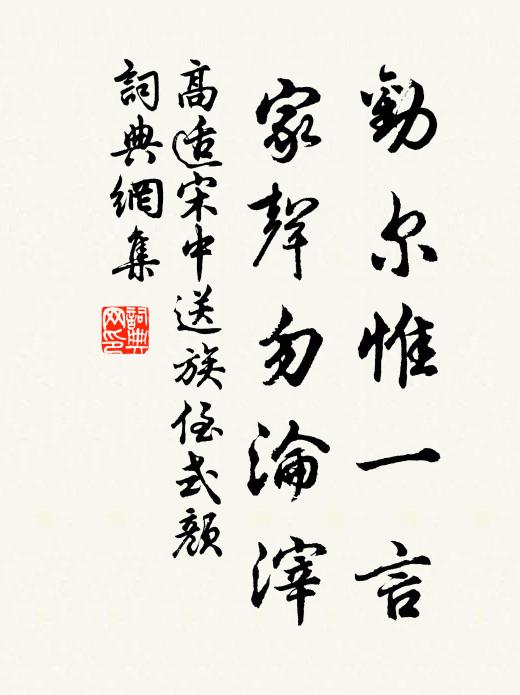 勸尔惟一言
家聲勿淪滓
高适宋中送族侄式顔
詞典網集
詞典网印